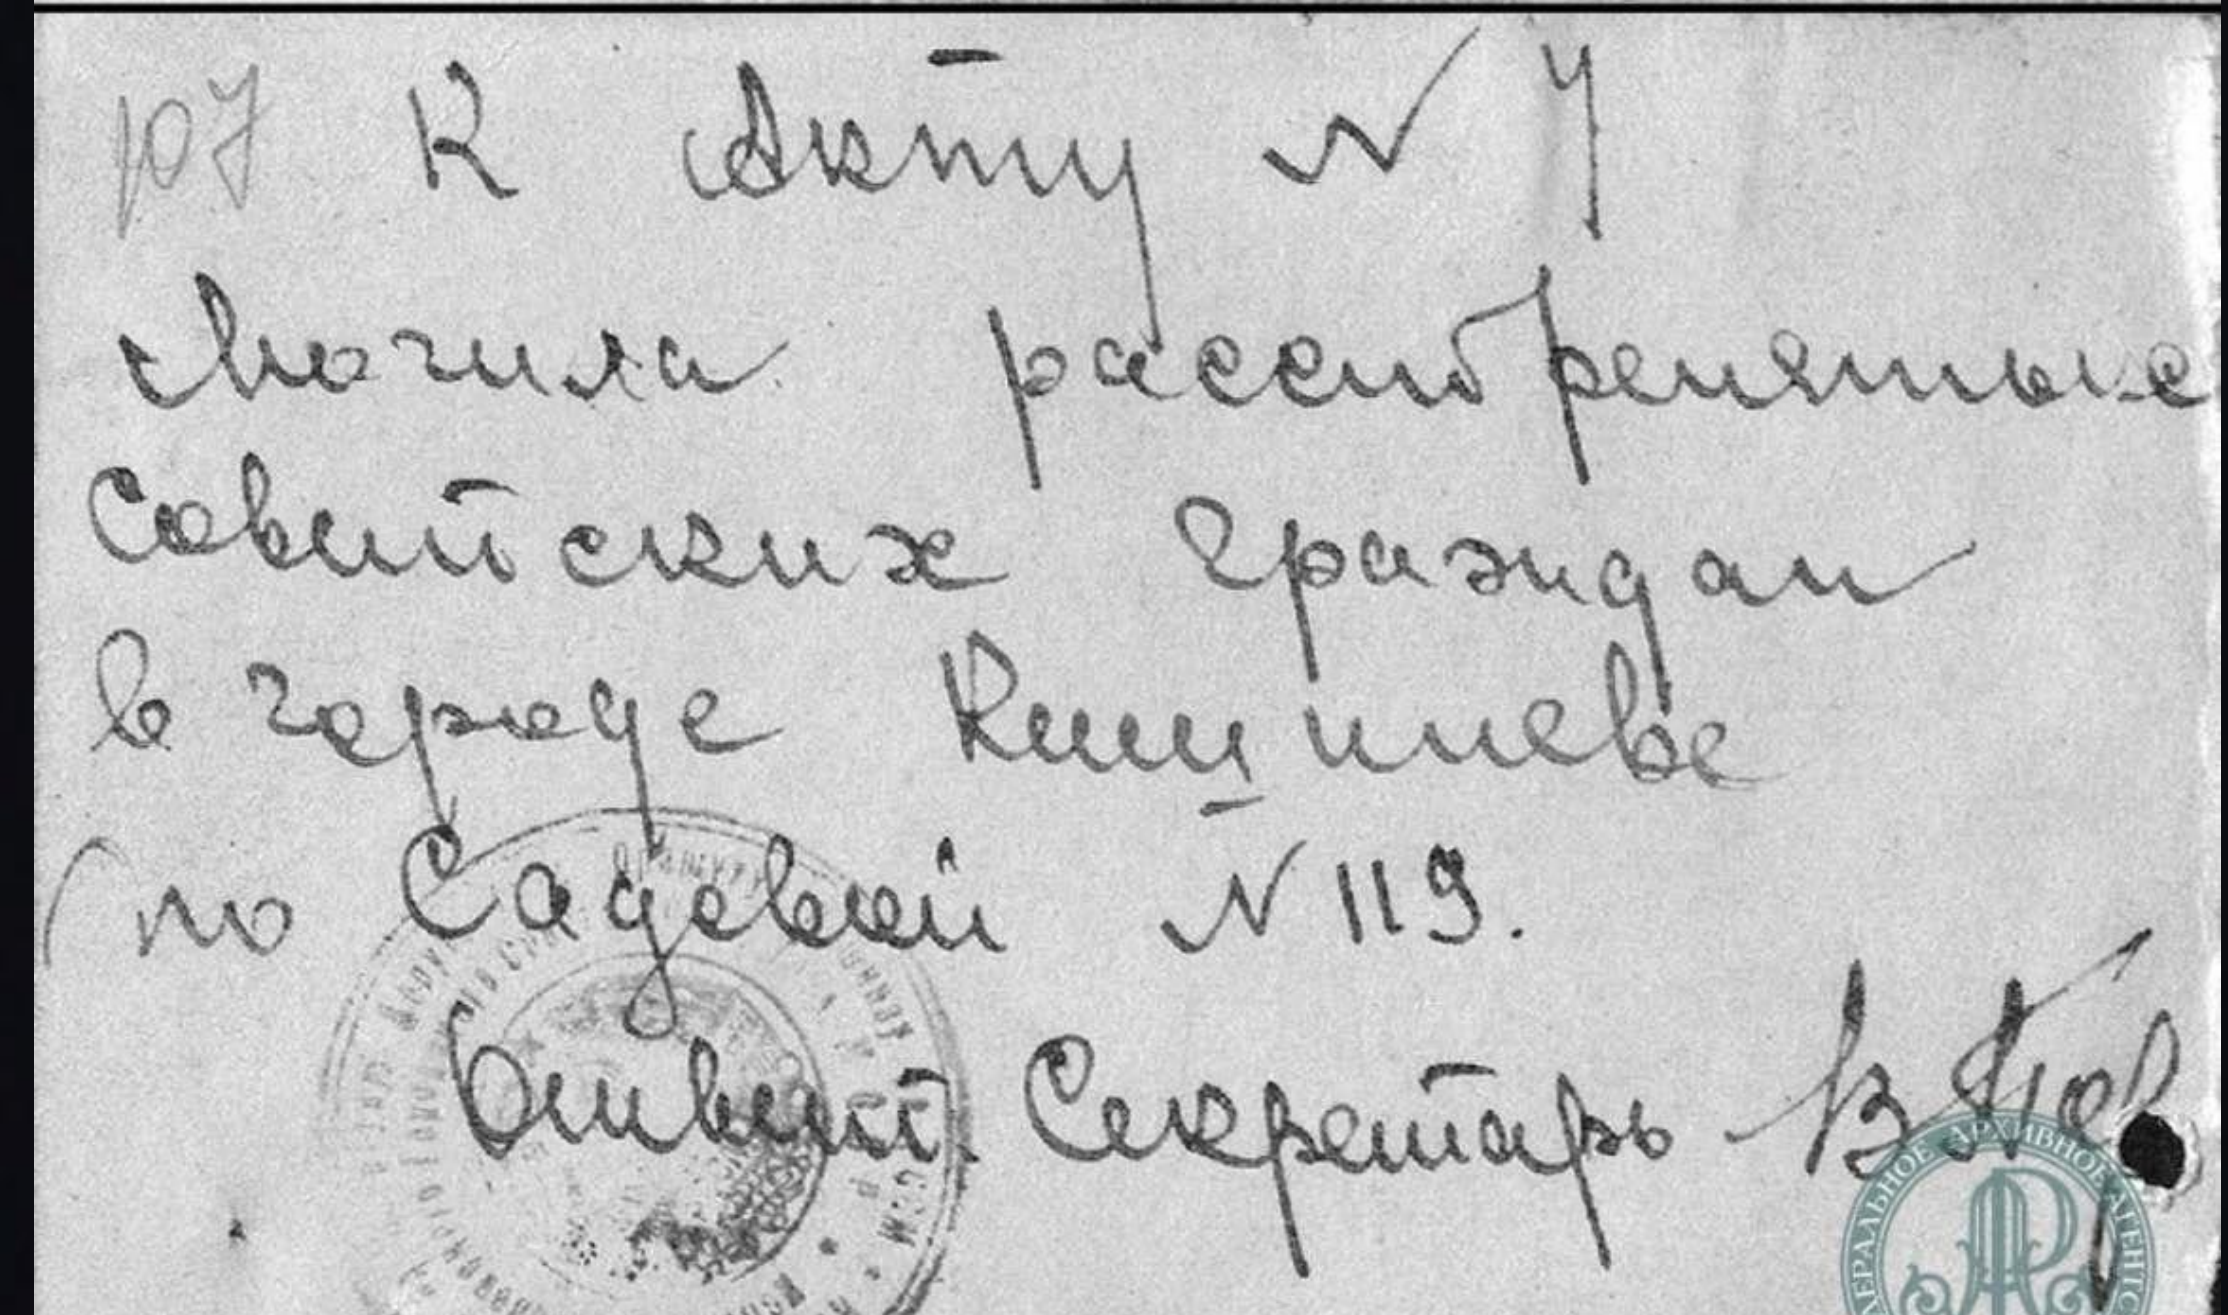 107 К Акту N 4
Могила расстрелянные
Советских граждан
в городе Кишиневе
по Садовой N 119.
Ответ. Секретарь
АРХИВНОЕ